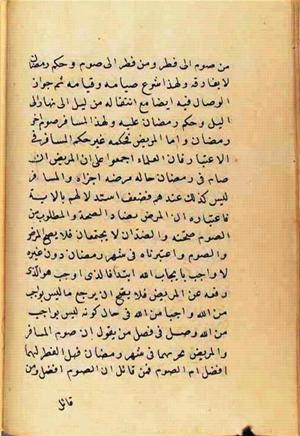 من صوم الى فطر ومن فطر الى صوم وحكم رمضان
لا يفارقه ولهذا شرع صيامه وقيامه ثم جواز
الوصال فيه ايضا مع انتقاله من ليل الى نهار الى
ليل وحكم رمضان عليه ولهذا المسافر صوم
رمضان واما المريض فحكمه غير حكم المسافر في
الاعتبار فان العلماء اجمعوا على ان المريض ان
صام في رمضان حالة مرضه اجزاه والمسافر
ليس كذلك عندهم فضعف استدلالهم بالاية
فاعتباره ان المرض يضاد الصحة والمطلوب من
الصوم صحته والضدان لا يجتمعان فلا يصح المرض
والصوم واعتبرناه في شهر رمضان دون غيره
لانه واجب بايجاب الله ابتداء فالذي اوجب هو الذي
رفعه عن المريض فلا يصح ان يرجع ما ليس بواجب
من الله واجبا من الله في حال كونه ليس بواجب
من الله وصل في فصل من يقول ان صوم المسافر
والمريض يجزيهما في شهر رمضان فهل الفطر لهما
افضل ام الصوم فمن قائل ان الصوم افضل ومن
قائل